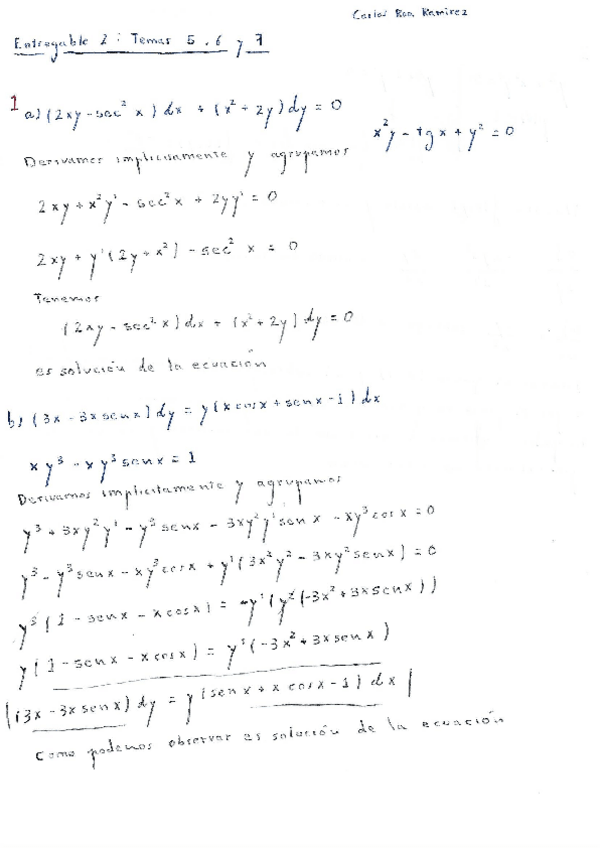 Carlos Roa Ramirez
Entregable 2 : Temas 5, 6 y 7
1 a) (2xy - sec² x) dx + (x² + 2y) dy = 0
x²y - tg x + y² = 0
Derivamos implicitamente y agrupamos
2xy + x²y' - sec² x + 2yy' = 0
2xy + y' (2y + x²) - sec² x = 0
Tenemos
(2xy - sec² x) dx + (x² + 2y) dy = 0
es solución de la ecuación
b) (3x - 3x sen x) dy = y (x cos x + sen x - 1) dx
x y³ - x y³ sen x = 1
Derivamos implicitamente y agrupamos
y³ + 3xy²y' - y³ sen x - 3xy²y' sen x - xy³ cos x = 0
y³ - y³ sen x - xy³ cos x + y' (3x²y² - 3xy² sen x) = 0
y³ (1 - sen x - x cos x) = -y' (y² (-3x² + 3x sen x))
y (1 - sen x - x cos x) = y' (-3x² + 3x sen x)
(3x - 3x sen x) dy = y (sen x + x cos x - 1) dx
Como podemos observar es solución de la ecuación